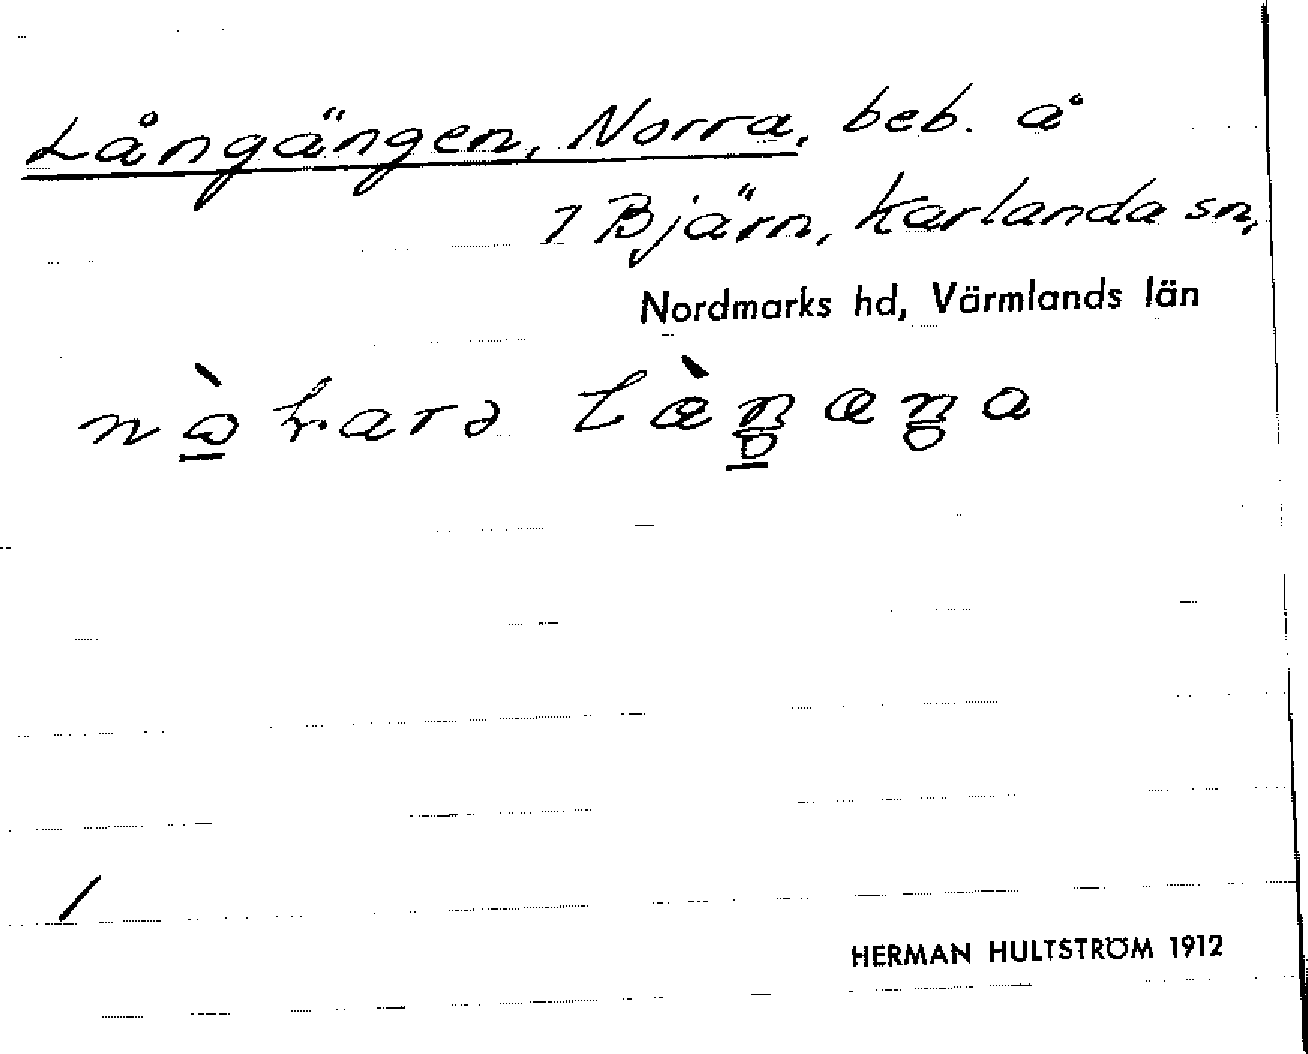 Långängen, Norra, beb. å
1 Bjärn, Karlanda sn,
Nordmarks hd, Värmlands län
/
HERMAN HULTSTRÖM 1912